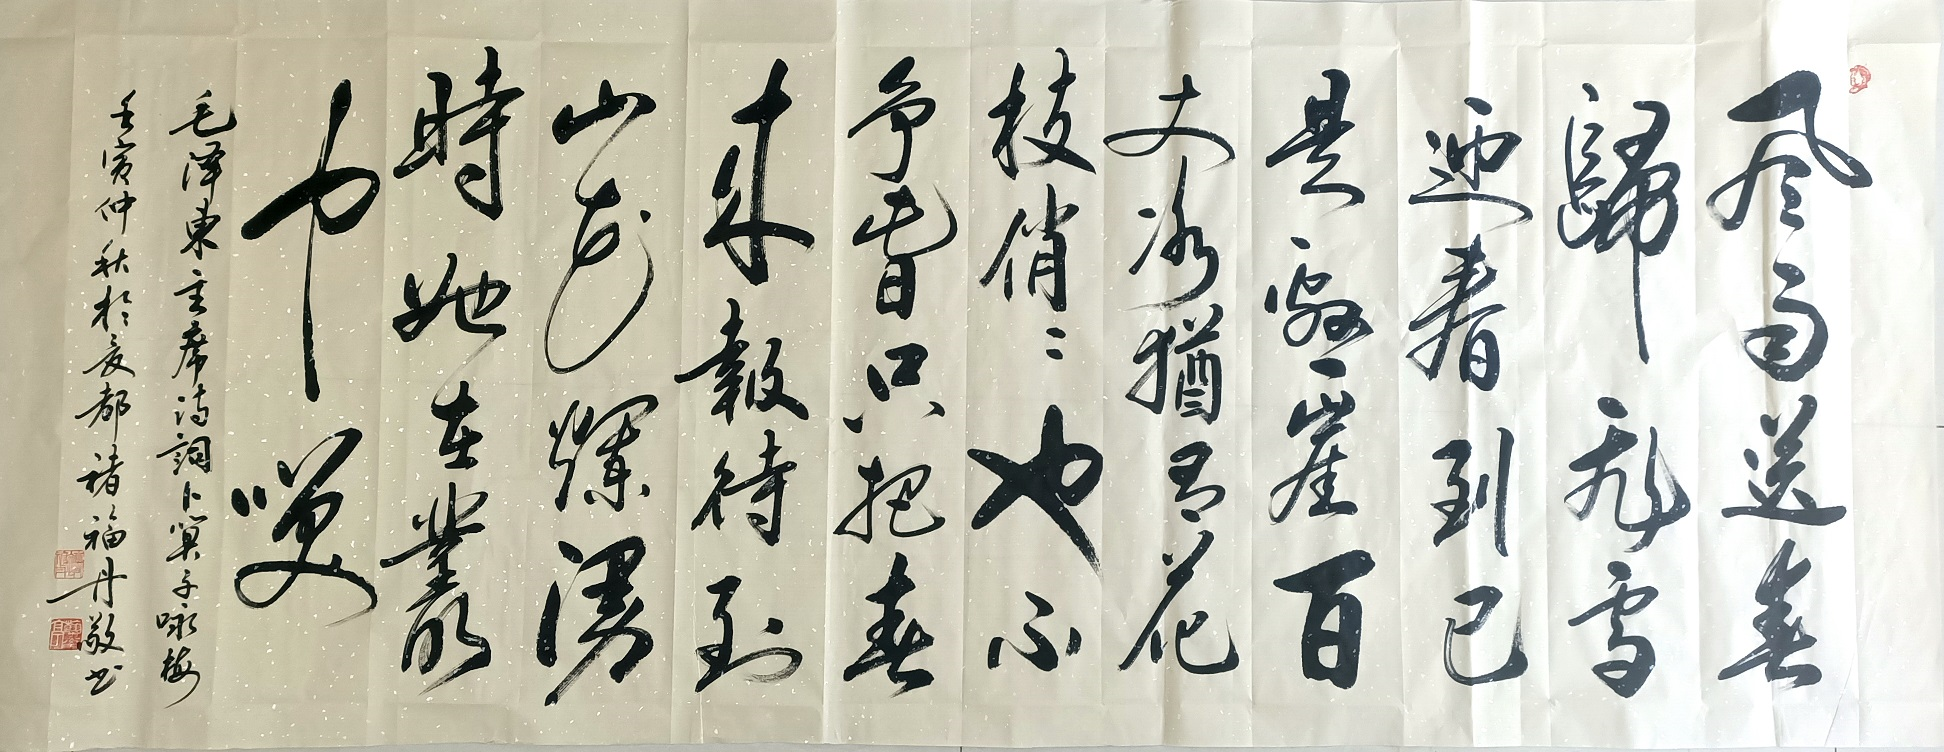 风雨送春
歸飛雪
迎春到已
是懸崖百
丈冰猶有花
枝俏〻也不
争春只把春
来報待到
山花爛漫
時她在叢
中笑
毛泽東主席诗詞卜算子咏梅
壬寅仲秋於夏都褚福丹敬书